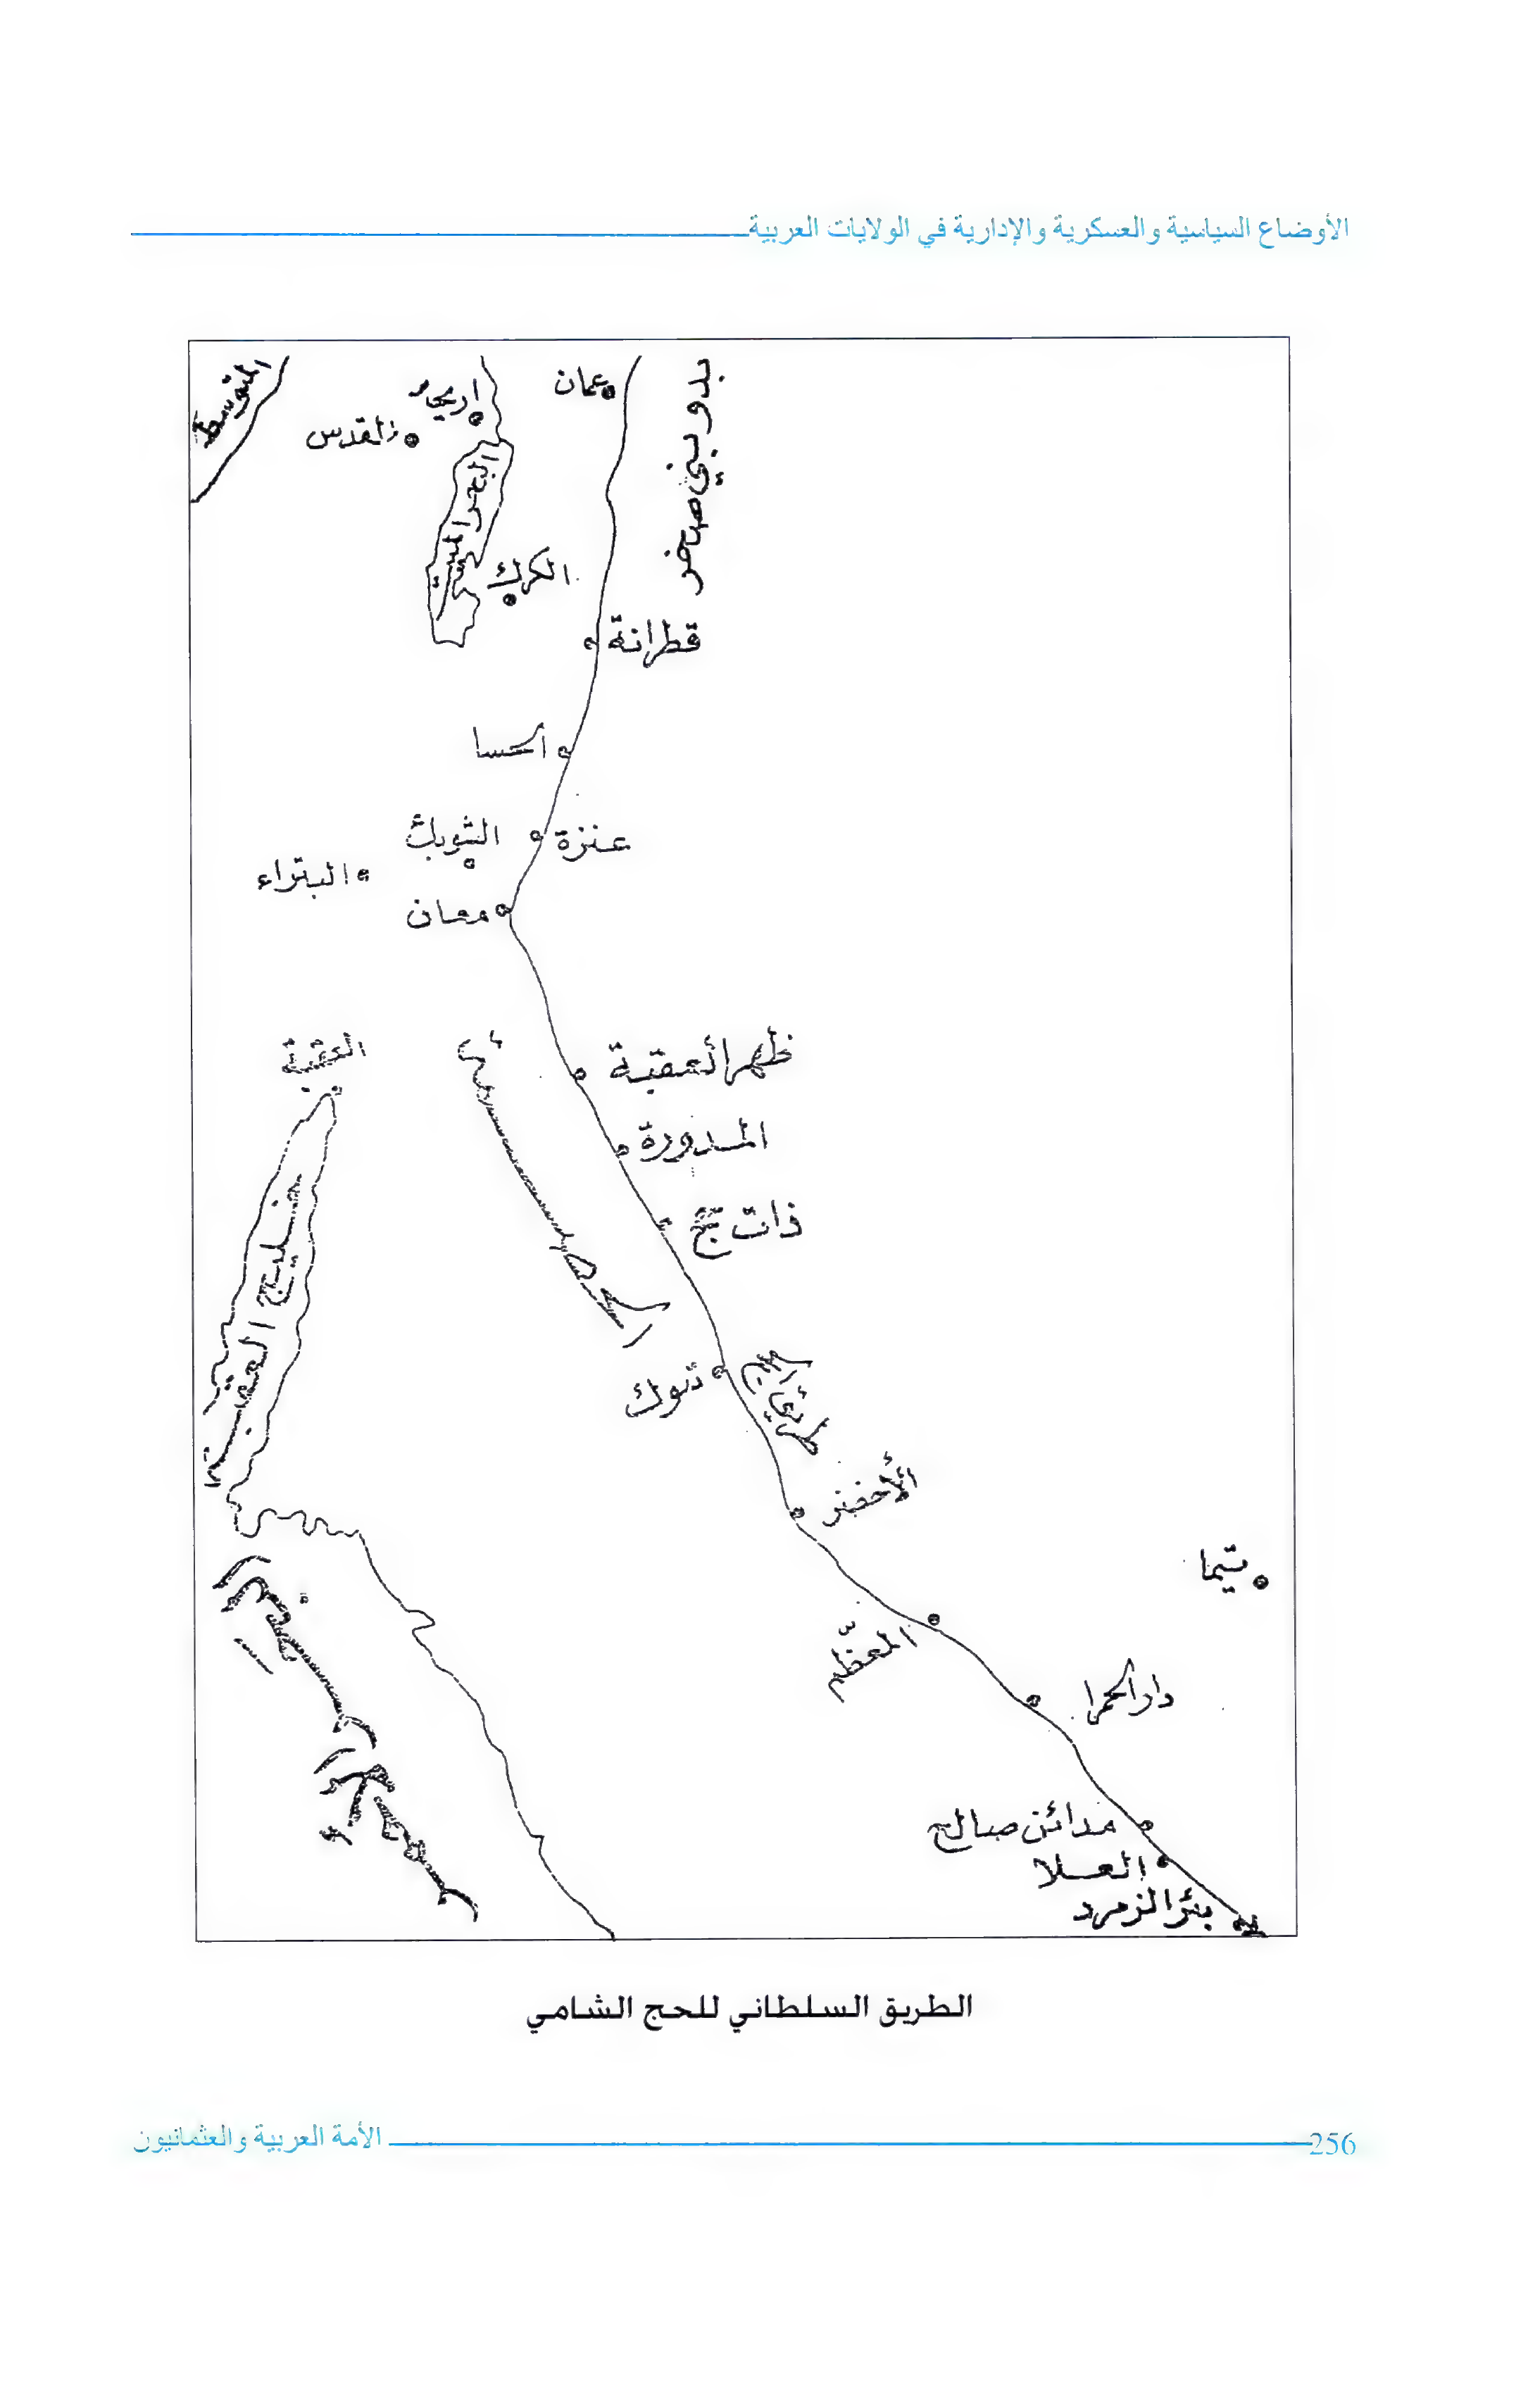 الأوضاع السياسية والعسكرية والإدارية في الولايات العربية
المتوسط
اريحا
عمان
القدس
بدو بني صخر
البحر الميت
الكرك
قطرانة
الحسا
عنزة
الشوبك
البتراء
معان
العقبة
ظهر العقبة
المدورة
ذات حج
خليج العقبة
تبوك
طريق الحج
الأخضر
تيما
المعظّم
دار الحمرا
مدائن صالح
العلا
بئر الزمرد
الطريق السلطاني للحج الشامي
256
الأمة العربية والعثمانيون